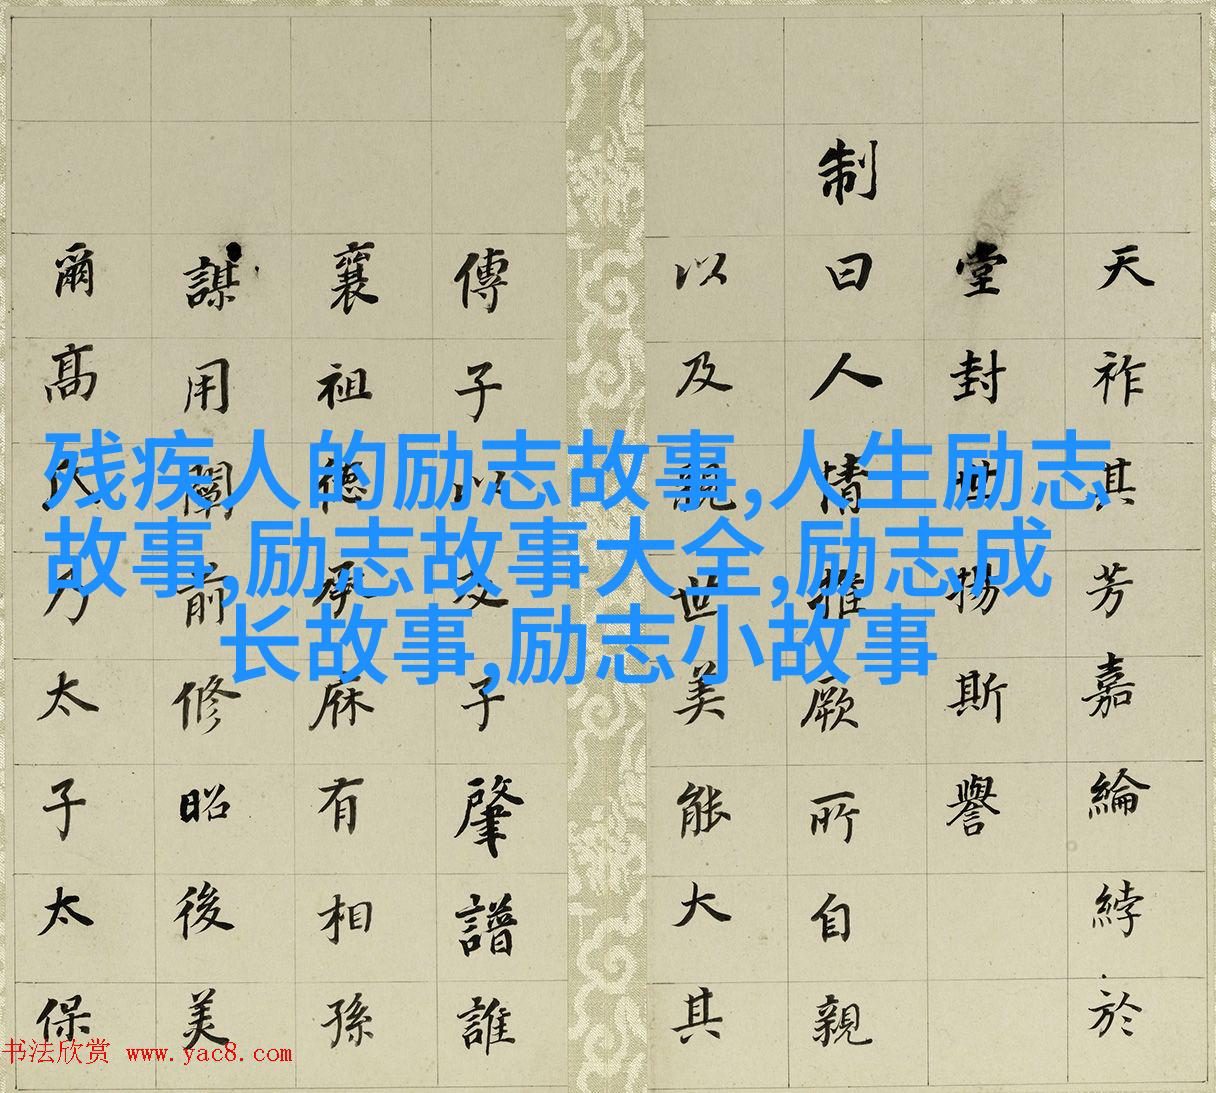 残疾人的励志故事,人生励志
故事,励志故事大全,励志成
长故事,励志小故事
天祚其芳嘉綸綍於
堂封世揚斯譽
制曰人情推厥所自親
以及親世美能大其
傳子以及子肇譜誰
襄祖德承庥有相孫
謀用闡前修昭後美
爾高氏乃太子太保
书法欣赏 www.yac8.com